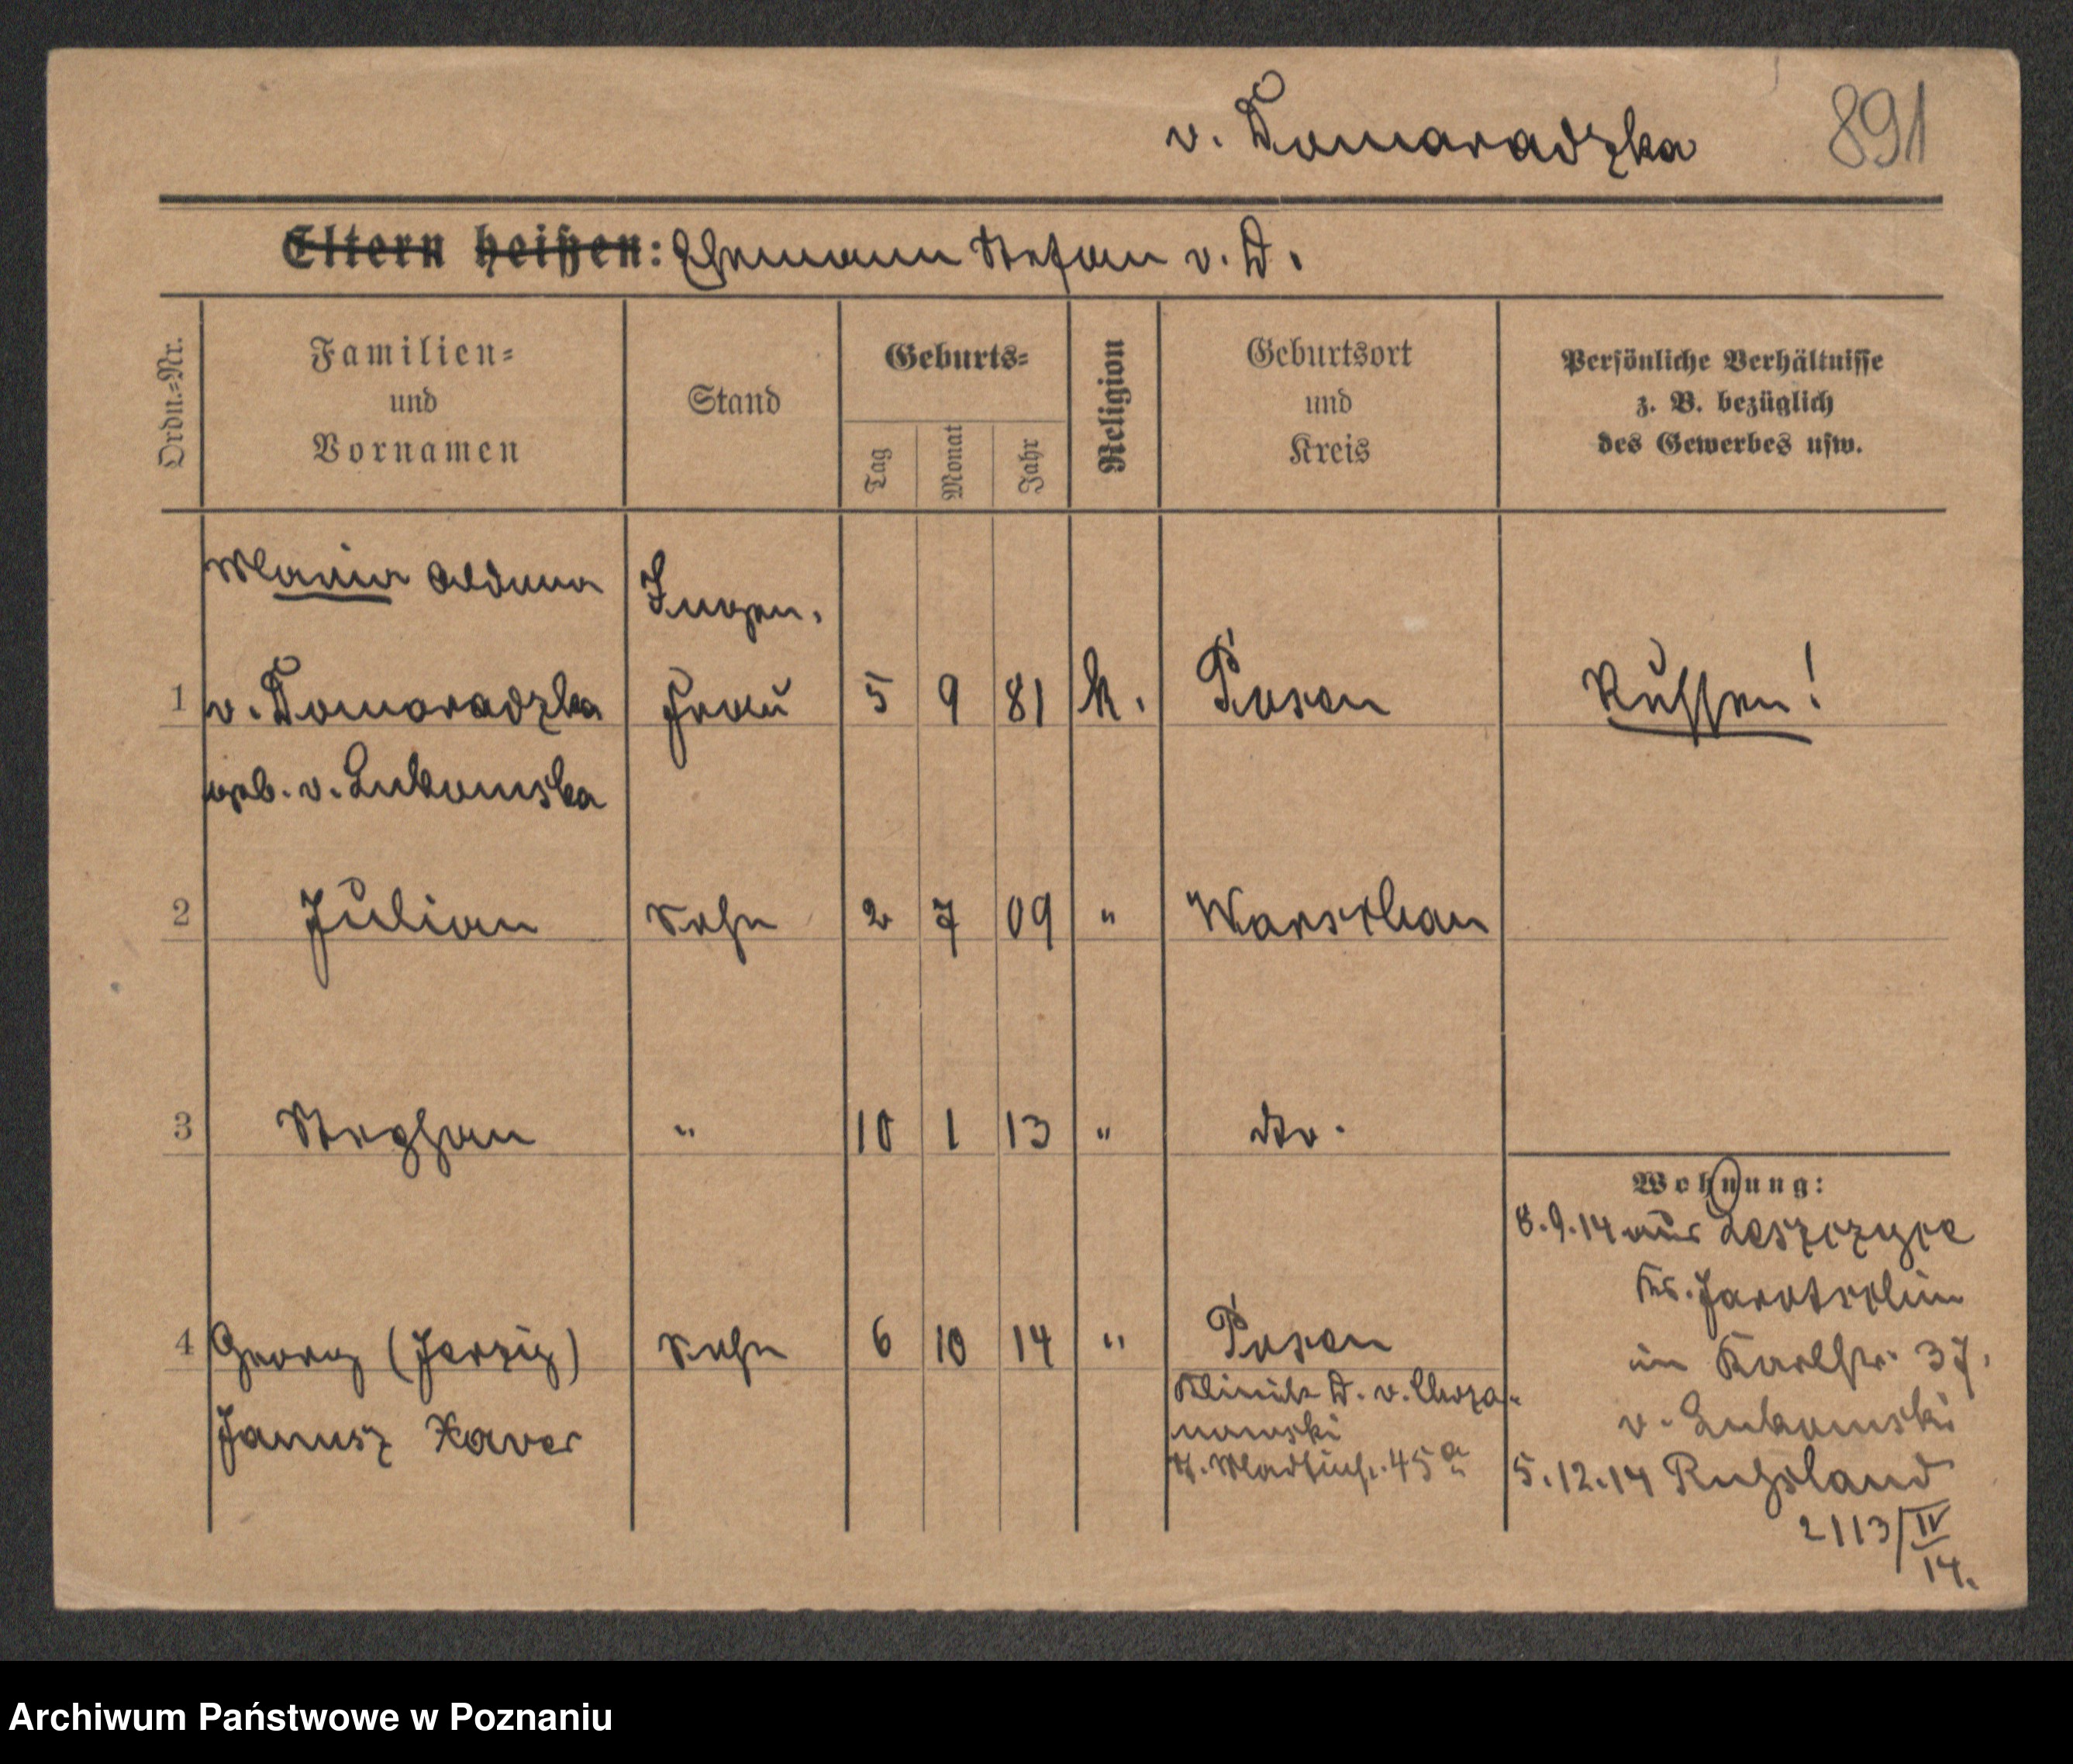 v. Domaradzka
891
Eltern heißen: Ehemann Stefan v. D.
Ordn.=Nr.
Familien=
und
Vornamen
Stand
Geburts=
Tag
Monat
Jahr
Religion
Geburtsort
und
Kreis
Persönliche Verhältnisse
z. B. bezüglich
des Gewerbes usw.
Maria
Ingen.
1 v. Domaradzka Frau 5 9 81 k. Posen Russen!
geb. v. Lukomska
2 Julian Sohn 2 7 09 " Warschau
3 Stephan " 10 1 13 " dto.
Wohnung:
8.9.14 aus Leszczyce
Kr. Jarotschin
4 Georg (Jerzig) Sohn 6 10 14 " Posen
in Karlstr. 37.
Klinik D. v. Chrza-
Janusz Xaver
nowski
v. Lukomski
45a
5.12.14 Russland
2113/IV
14.
Archiwum Państwowe w Poznaniu